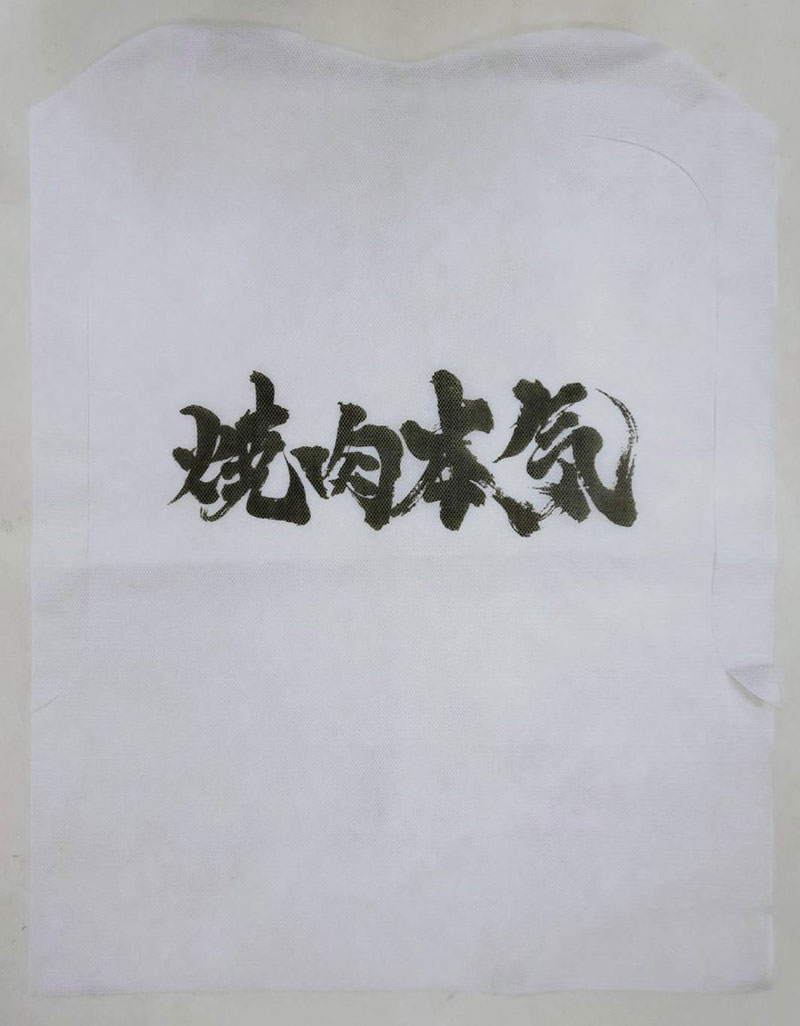 焼肉本気